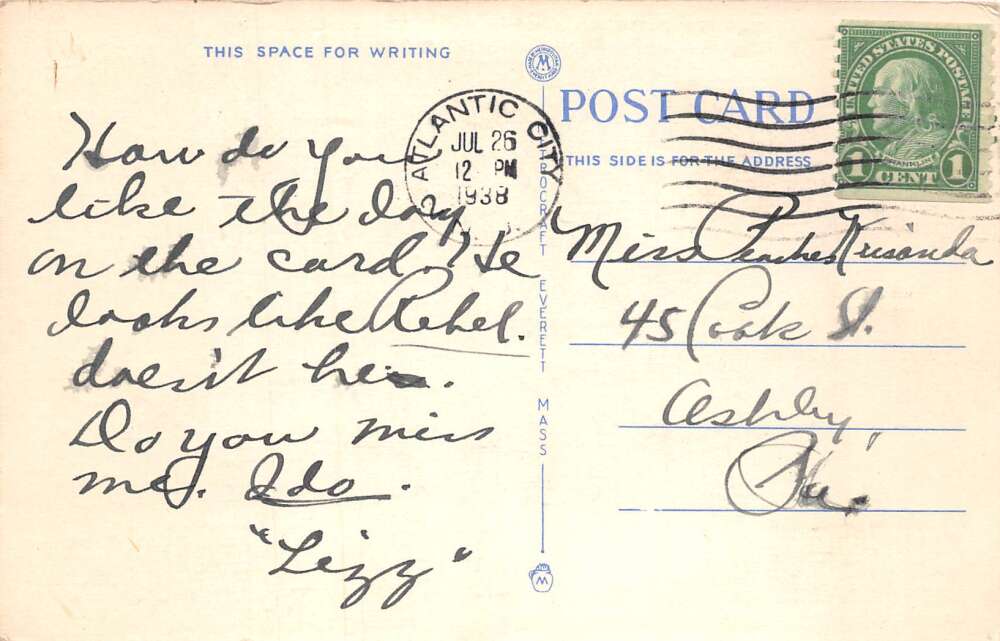 THIS SPACE FOR WRITING
How do you
like the dog
on the card. He
looks like Rebel.
doesn't he.
Do you miss
me. I do.
"Lizz"
ATLANTIC CITY
JUL 26
12 PM
1938
TROCRAFT EVERETT MASS
POST CARD
THIS SIDE IS FOR THE ADDRESS
UNITED STATES POSTAGE
FRANKLIN
1 CENT 1
Miss Peaches
45 Cook St.
Ashley,
Pa.